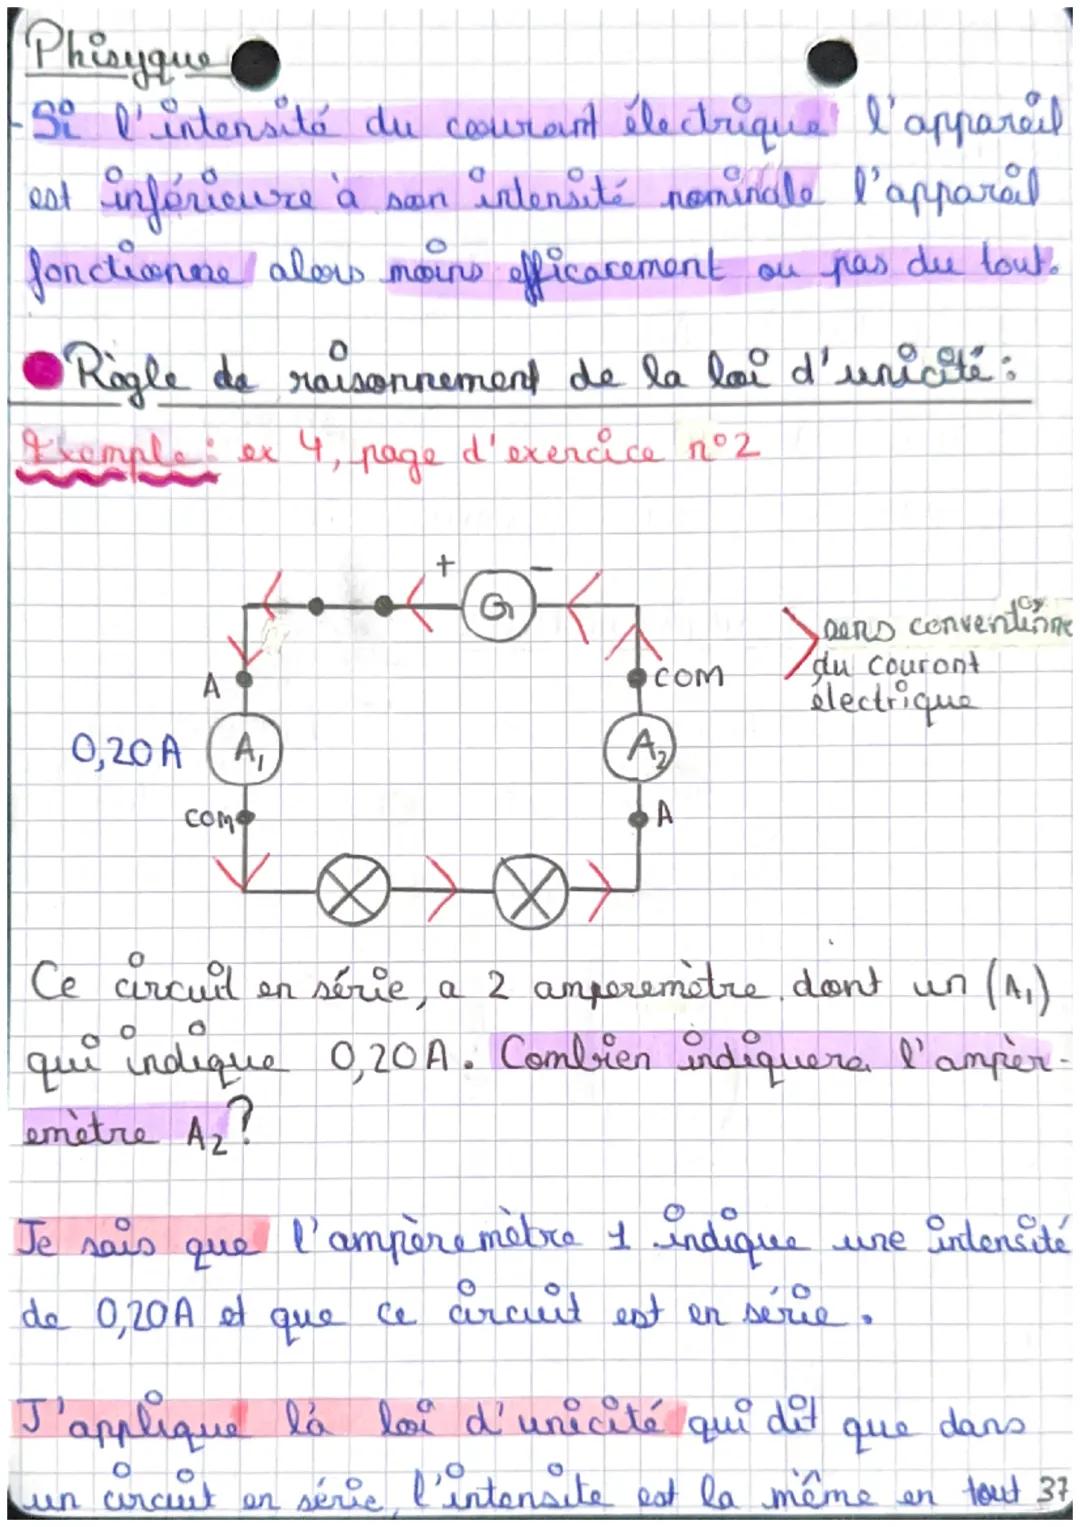 Phisyque
- Si l'intensité du courant électrique l'appareil
est inférieure à son intensité nominale l'appareil
fonctionne alors moins efficacement ou pas du tout.
Règle de raisonnement de la loi d'unicité :
Exemple : ex 4, page d'exercice n°2
+ G -
sens conventionne
du courant
électrique
A COM
0,20A A₁ A₂
COM A
Ce circuit en série, a 2 amperemètre dont un (A₁)
qui indique 0,20A. Combien indiquera l'ampèr-
emètre A₂?
Je sais que l'ampèremètre 1 indique une intensité
de 0,20A et que ce circuit est en série.
J'applique là loi d'unicité qui dit que dans
un circuit en série, l'intensite est la même en tout 37